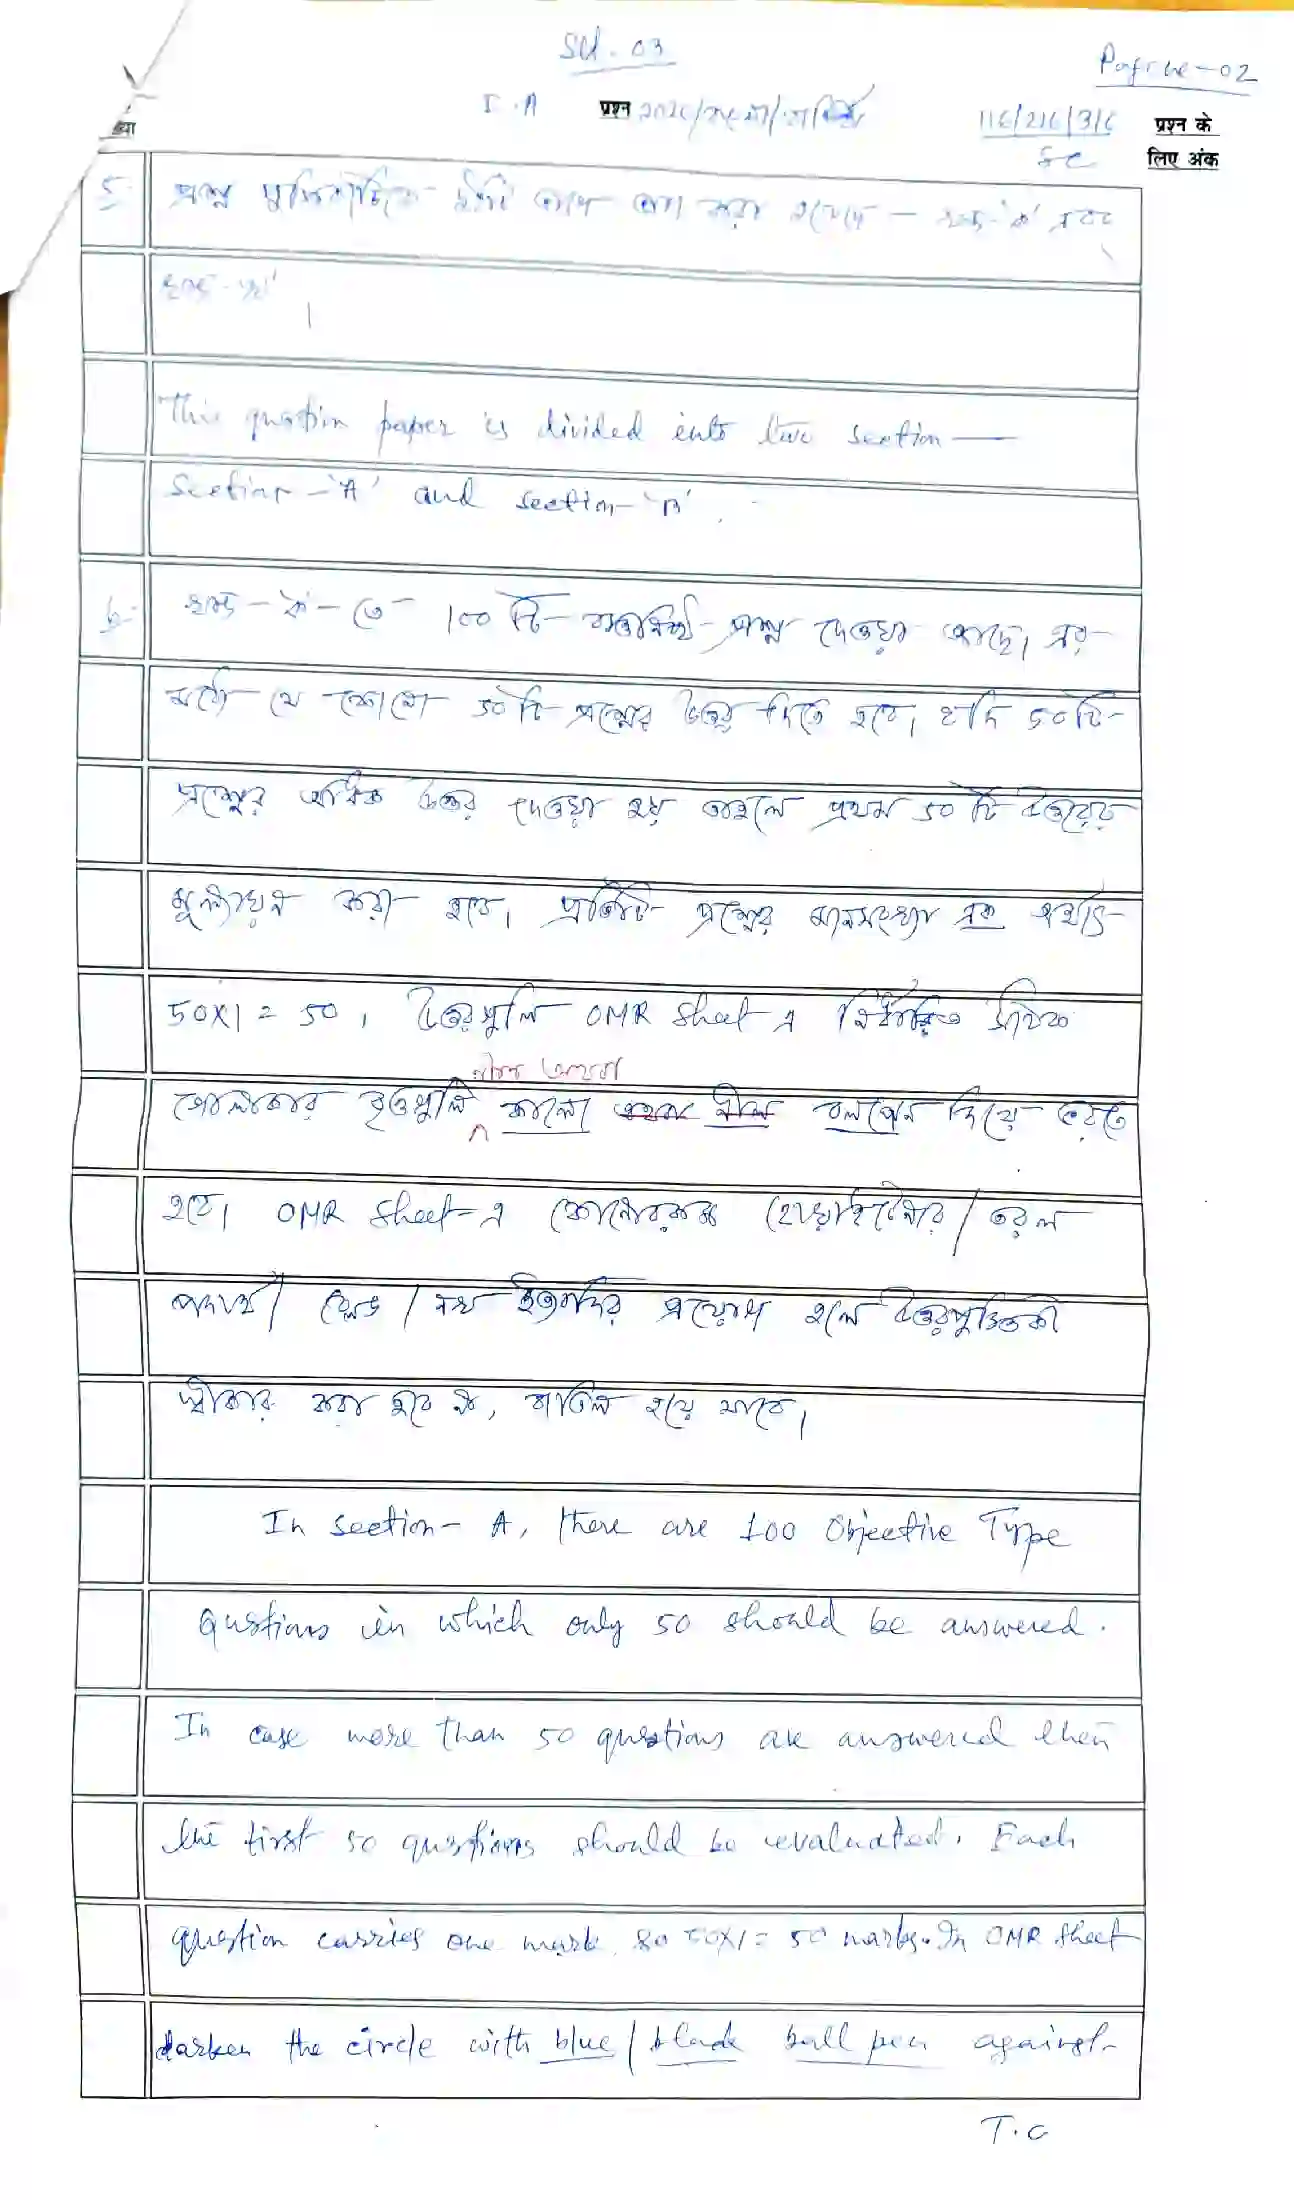 SU - 03
Page - 02
I.A প্রশ্ন
116/2/6/3/6
प्रश्न के
लिए अंक
5. প্রশ্ন পুস্তিকাটিকে দুইটি ভাগে ভাগ করা হয়েছে – খন্ড-'ক' এবং
খন্ড-'খ'।
This question paper is divided into two section —
Section - 'A' and section - 'B'.
6. খন্ড - ক - তে 100 টি বস্তুনিষ্ঠ প্রশ্ন দেওয়া আছে। এর
মধ্যে যে কোনো 50 টি প্রশ্নের উত্তর দিতে হবে। যদি 50 টি
প্রশ্নের অধিক উত্তর দেওয়া হয় তাহলে প্রথম 50 টি উত্তরের
মূল্যায়ন করা হবে। প্রতিটি প্রশ্নের মানসংখ্যা এক অর্থাৎ
50x1 = 50, উত্তরগুলি OMR Sheet এ নির্ধারিত সঠিক
নীল অথবা
গোলাকার বৃত্তগুলি কালো অথবা নীল বলপেন দিয়ে ভরতে
হবে। OMR Sheet-এ কোনোরকম হোয়াইটেনার / তরল
পদার্থ / ব্লেড / নখ ইত্যাদির প্রয়োগ হলে উত্তরপুস্তিকা
স্বীকার করা হবে না, বাতিল হয়ে যাবে।
In section - A, there are 100 Objective Type
Qustions in which only 50 should be answered.
In case more than 50 questions are answered then
the first 50 questions should be evaluated. Each
question carries one mark, so 50x1 = 50 marks. In OMR Sheet
darken the circle with blue / black ball pen against
T.C